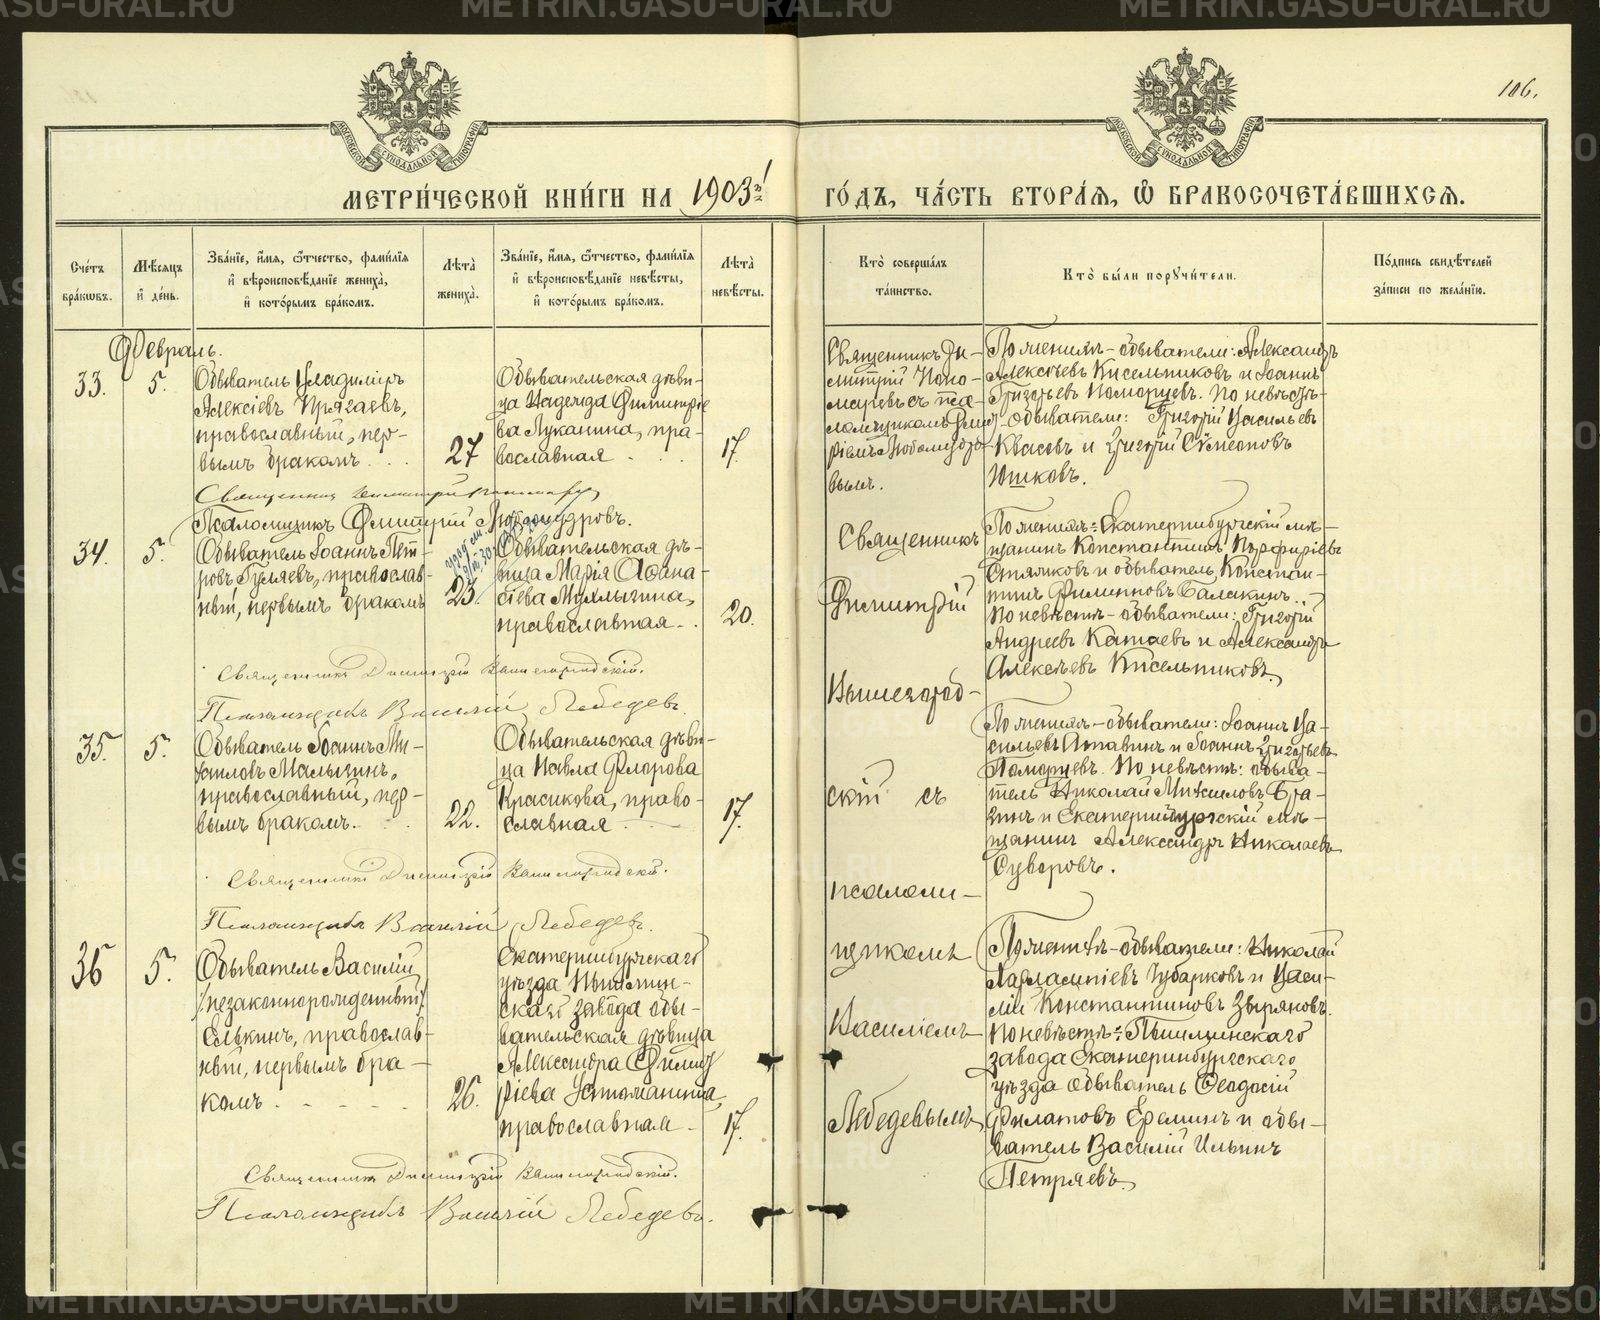 106.
МЕТРИ́ЧЕСКОЙ КНИ́ГИ НА 1903й
ГО́ДЪ, ЧА́СТЬ ВТОРА́Я, Ѡ БРАКОСОЧЕТА́ВШИХСЯ.
Сче́тъ бра́кѡвъ.
Мѣ́сяцъ и де́нь.
Зва́нїе, и́мя, ѻ́тчество, фами́лїя и вѣроисповѣ́данїе жениха̀, и кото́рымъ бра́комъ.
Лѣ́та жениха̀.
Зва́нїе, и́мя, ѻ́тчество, фами́лїя и вѣроисповѣ́данїе невѣ́сты, и кото́рымъ бра́комъ.
Лѣ́та невѣ́сты.
Кто̀ соверша́лъ та́инство.
Кто̀ бы́ли порꙋчи́тели.
По́дпись свидѣ́телей за́писи по жела́нїю.
Февраль.
33.
5.
Обыватель Владимiръ
Алексiевъ Прягаевъ,
православный, пер-
вымъ бракомъ . . .
27
Обывательская дѣви-
ца Надежда Димитрiе
ва Луканина, пра-
вославная - . .
17.
Священникъ Ди-
митрiй Поно-
маревъ съ пса-
ломщикомъ Дмит-
рiемъ Любомудро-
вымъ.
По женихѣ - обыватели: Александръ
Алексѣевъ Кисельниковъ и Iоаннъ
Григорьевъ Поморцевъ. По невѣстѣ
- обыватели: Григорiй Васильевъ
Квасовъ и Григорiй Сѵмеоновъ
Юшковъ.
Священникъ
Псаломщикъ Дмитрiй Любомудровъ.
34.
5.
Обыватель Iоаннъ Пет-
ровъ Гуляевъ, православ-
ный, первымъ бракомъ
23.
Обывательская дѣ-
вица Марiя Аѳана-
сiева Мухлынина,
православная - .
20.
Священникъ
Димитрiй
Вышегород-
скiй съ
псалом-
щикомъ
Василiемъ
Лебедевымъ
По женихѣ: Екатеринбургскiй мѣ-
щанинъ Константинъ Порфирiевъ
и обыватель Констан-
тинъ Филипповъ Балакинъ. -
По невѣстѣ - обыватели: Григорiй
Андреевъ Катаевъ и Александръ
Алексѣевъ Кисельниковъ.
Священникъ Димитрiй Вышегородскiй.
Псаломщикъ Василiй Лебедевъ.
35.
5.
Обыватель Iоаннъ Ми-
хаиловъ Малыгинъ,
православный, пер-
вымъ бракомъ. - .
22.
Обывательская дѣви-
ца Павла Флорова
Красикова, право-
славная -
17.
По женихѣ - обыватели: Iоаннъ Ва-
сильевъ и Iоаннъ Григорьевъ
Поморцевъ. По невѣстѣ: обыва-
тель Николай Михаиловъ Бра-
зинъ и Екатеринбургскiй мѣ-
щанинъ Александръ Николаевъ
Суворовъ.
Священникъ Димитрiй Вышегородскiй.
Псаломщикъ Василiй Лебедевъ.
36
5.
Обыватель Василiй
/незаконнорожденный/
Елькинъ, православ-
ный, первымъ бра-
комъ - - - - .
26.
Екатеринбургскаго
уѣзда Пышмин-
скаго завода обы-
вательская дѣвица
Александра Димит
рiева Устюжанина,
православная -
17.
По женихѣ - обыватели: Николай
Харлампiевъ Губарковъ и Васи-
лiй Константиновъ Зыряновъ.
По невѣстѣ: Пышминскаго
завода Екатеринбургскаго
уѣзда обыватель Ѳеодосiй
Филатовъ Ереминъ и обы-
ватель Василiй Ильинъ
Петряевъ.
Священникъ Димитрiй Вышегородскiй.
Псаломщикъ Василiй Лебедевъ.
METRIKI.GASU-URAL.RU